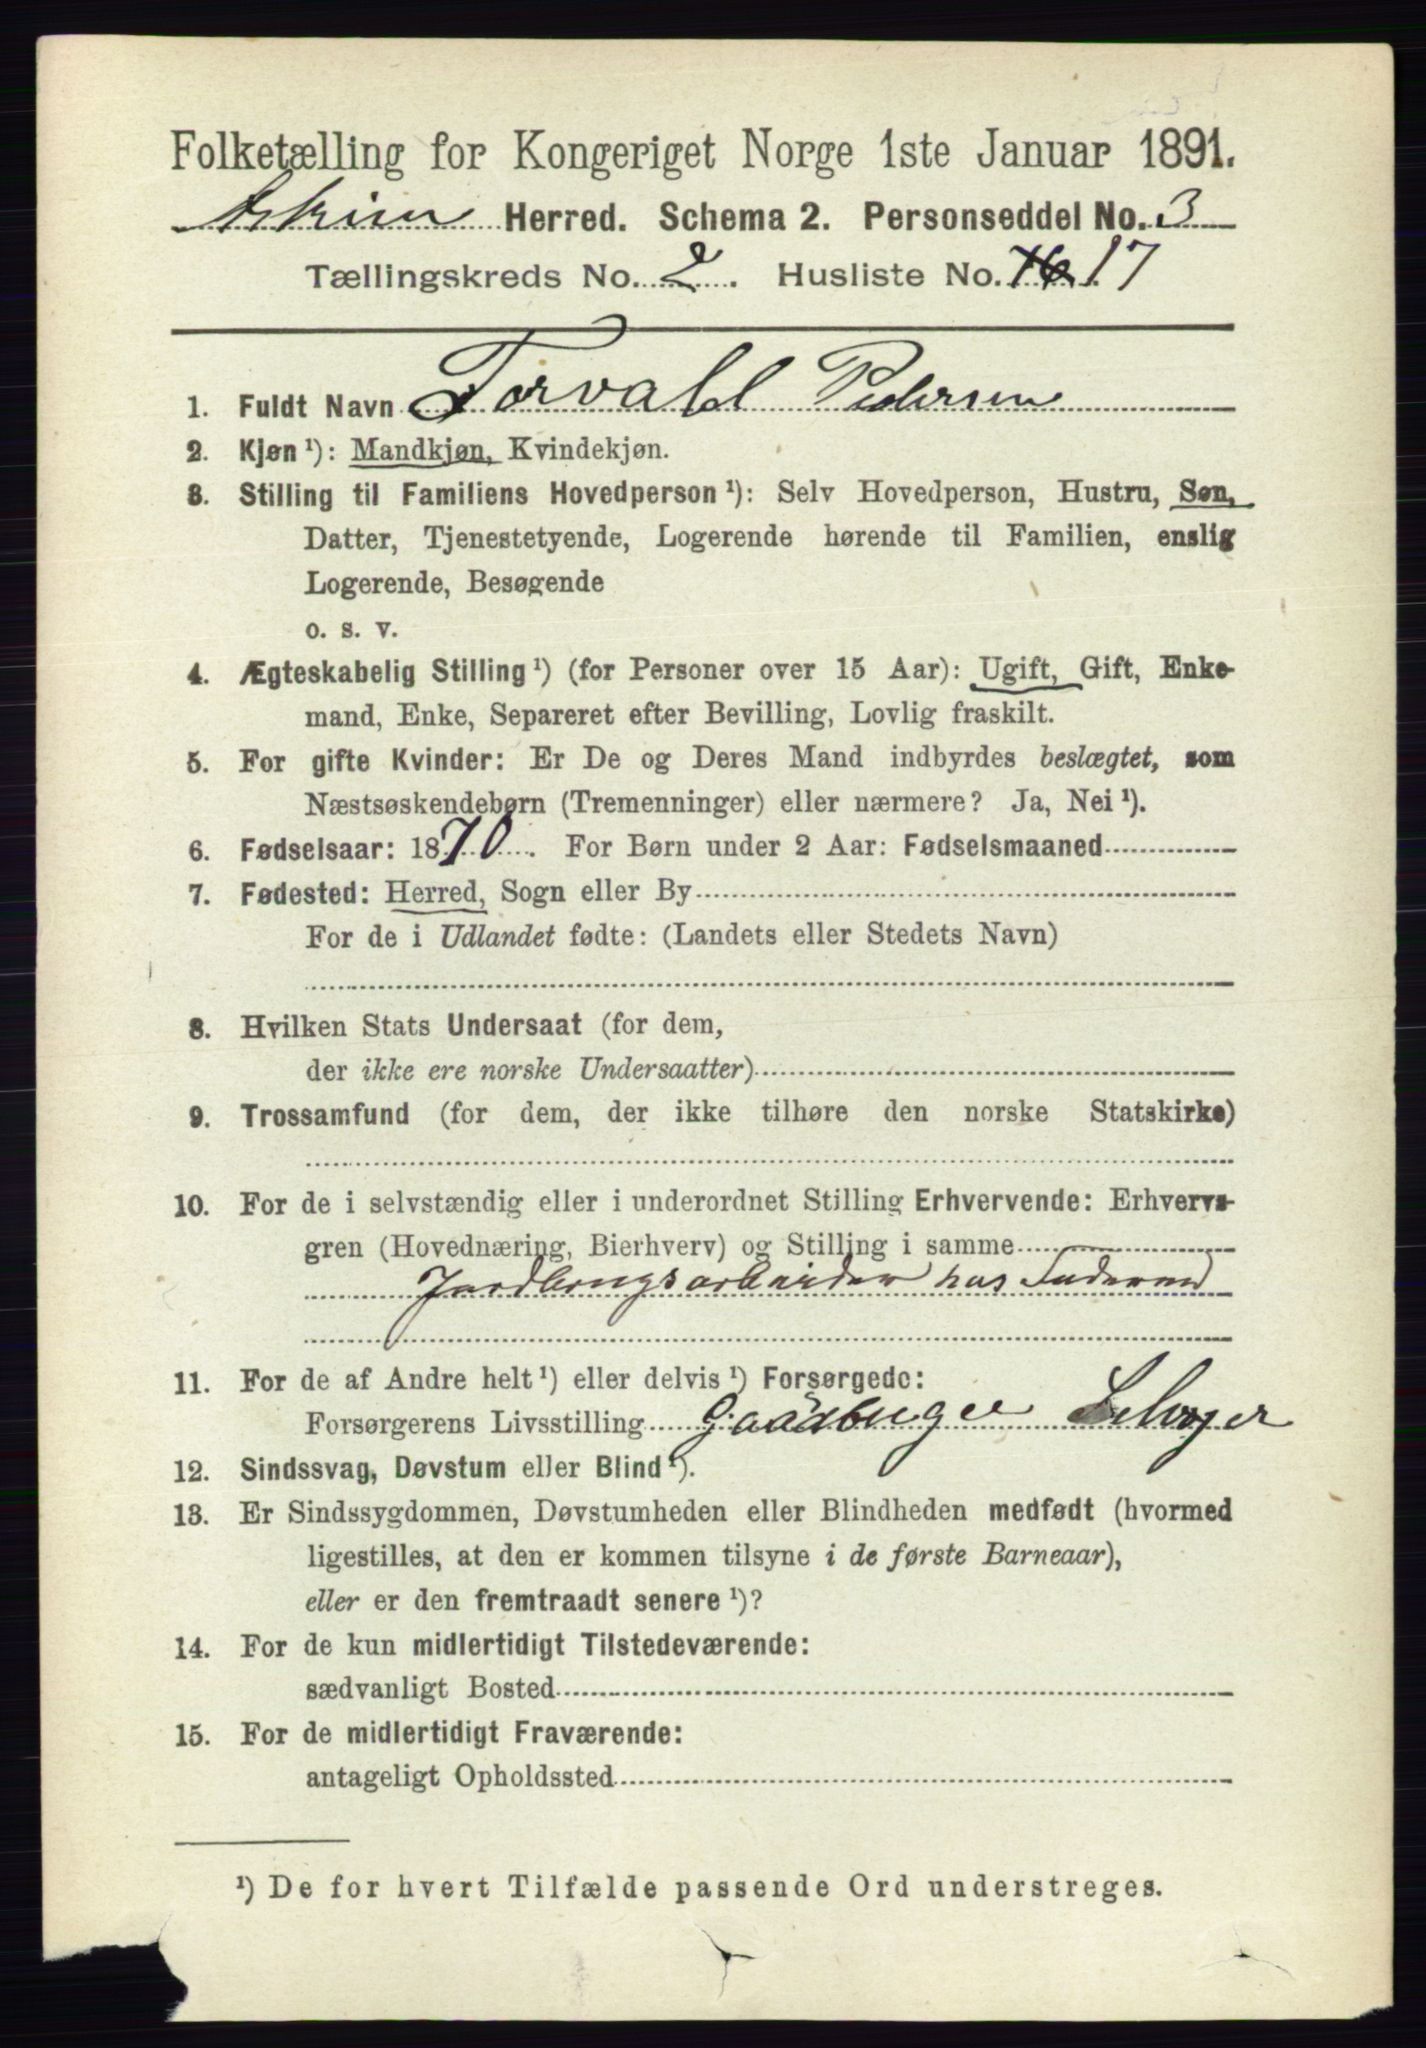 Folketælling for Kongeriget Norge 1ste Januar 1891.
Askim Herred. Schema 2. Personseddel No. 3
Tællingskreds No. 2. Husliste No. 16 17
1. Fuldt Navn Torvald Pedersen
2. Kjøn ¹): Mandkjøn, Kvindekjøn.
3. Stilling til Familiens Hovedperson ¹): Selv Hovedperson, Hustru, Søn,
Datter, Tjenestetyende, Logerende hørende til Familien, enslig
Logerende, Besøgende
o. s. v.
4. Ægteskabelig Stilling ¹) (for Personer over 15 Aar): Ugift, Gift, Enke-
mand, Enke, Separeret efter Bevilling, Lovlig fraskilt.
5. For gifte Kvinder: Er De og Deres Mand indbyrdes beslægtet, som
Næstsøskendebørn (Tremenninger) eller nærmere? Ja, Nei ¹).
6. Fødselsaar: 1870. For Børn under 2 Aar: Fødselsmaaned
7. Fødested: Herred, Sogn eller By
For de i Udlandet fødte: (Landets eller Stedets Navn)
8. Hvilken Stats Undersaat (for dem,
der ikke ere norske Undersaatter)
9. Trossamfund (for dem, der ikke tilhøre den norske Statskirke)
10. For de i selvstændig eller i underordnet Stilling Erhvervende: Erhvervs-
gren (Hovednæring, Bierhverv) og Stilling i samme
Jordbrugsarbeider hos Faderen
11. For de af Andre helt ¹) eller delvis ¹) Forsørgede:
Forsørgerens Livsstilling Gaardbruger Selveier
12. Sindssvag, Døvstum eller Blind ¹).
13. Er Sindssygdommen, Døvstumheden eller Blindheden medfødt (hvormed
ligestilles, at den er kommen tilsyne i de første Barneaar),
eller er den fremtraadt senere ¹)?
14. For de kun midlertidigt Tilstedeværende:
sædvanligt Bosted
15. For de midlertidigt Fraværende:
antageligt Opholdssted
¹) De for hvert Tilfælde passende Ord understreges.